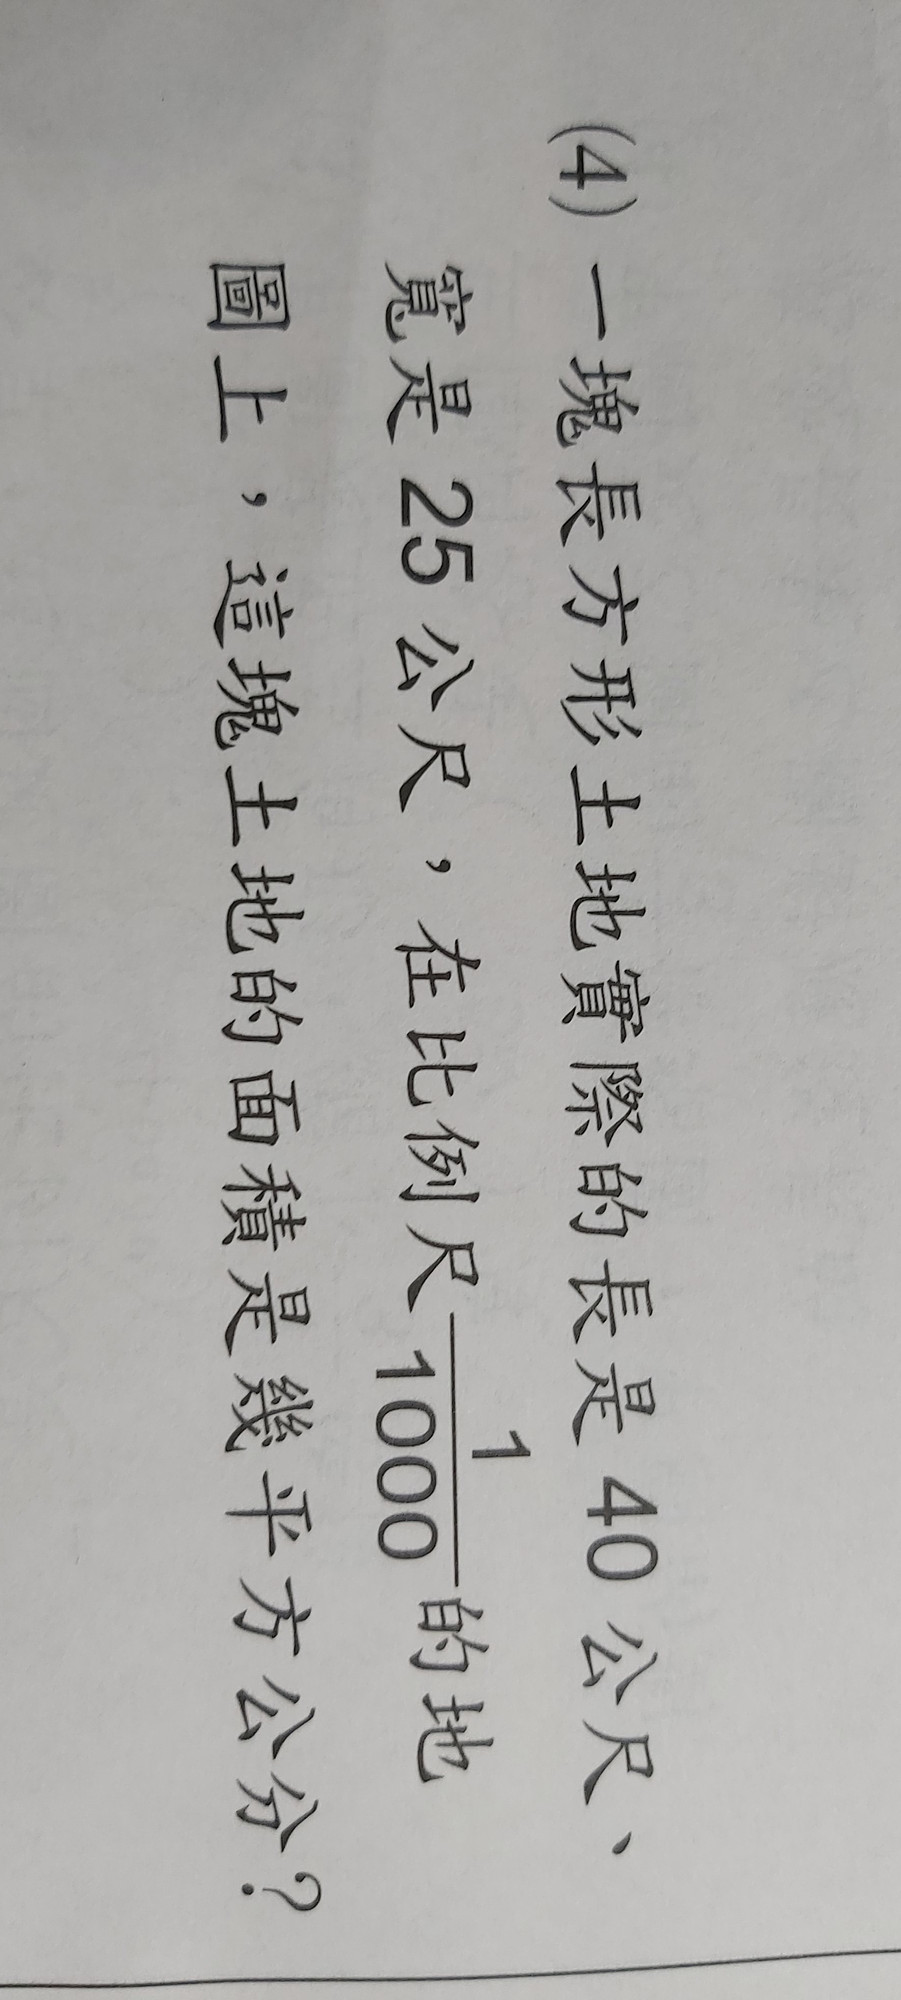 (4) 一塊長方形土地實際的長是 40 公尺、
寬是 25 公尺，在比例尺 1/1000 的地
圖上，這塊土地的面積是幾平方公分？